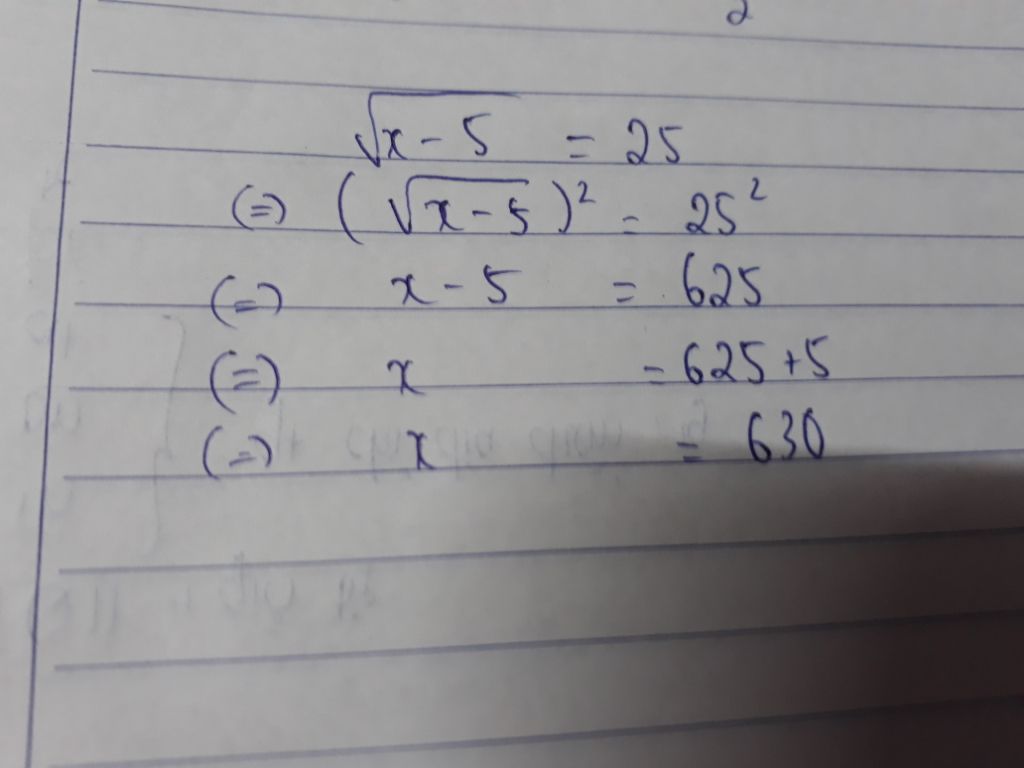 2
√x - 5 = 25
(=) (√x - 5)² = 25²
(=) x - 5 = 625
(=) x = 625 + 5
(=) x = 630